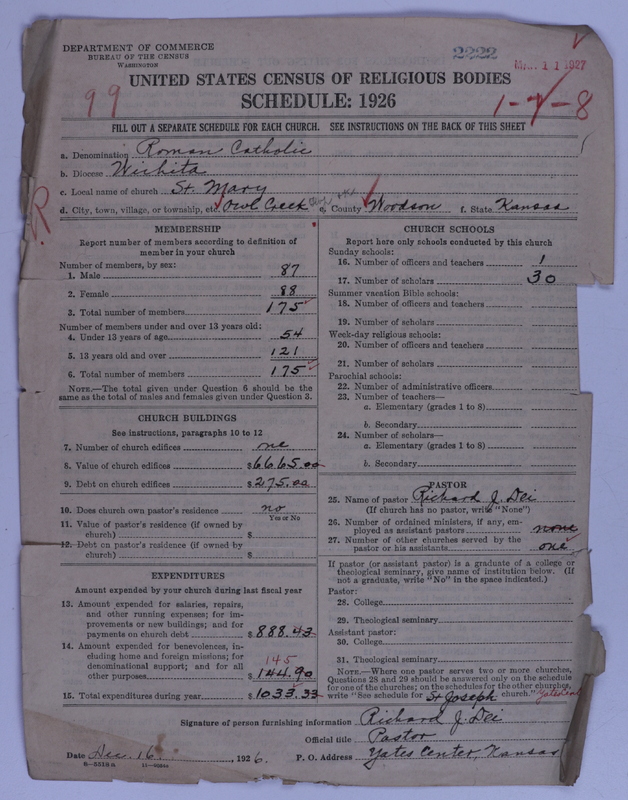 DEPARTMENT OF COMMERCE
BUREAU OF THE CENSUS
WASHINGTON
2222
MAR 11 1927
UNITED STATES CENSUS OF RELIGIOUS BODIES
99
SCHEDULE: 1926
1-7-8
FILL OUT A SEPARATE SCHEDULE FOR EACH CHURCH. SEE INSTRUCTIONS ON THE BACK OF THIS SHEET
a. Denomination Roman Catholic
b. Diocese Wichita
c. Local name of church St. Mary
d. City, town, village, or township, etc. Owl Creek e. County Woodson f. State Kansas
R.
MEMBERSHIP
Report number of members according to definition of
member in your church
Number of members, by sex:
1. Male 87
2. Female 88
3. Total number of members 175
Number of members under and over 13 years old:
4. Under 13 years of age 54
5. 13 years old and over 121
6. Total number of members 175
NOTE.—The total given under Question 6 should be
same as the total of males and females given under Question 3.
CHURCH BUILDINGS
See instructions, paragraphs 10 to 12
7. Number of church edifices one
8. Value of church edifices $6665.00
9. Debt on church edifices $275.00
10. Does church own pastor's residence no
Yes or No
11. Value of pastor's residence (if owned by
church) $
12. Debt on pastor's residence (if owned by
church) $
EXPENDITURES
Amount expended by your church during last fiscal year
13. Amount expended for salaries, repairs,
and other running expenses; for im-
provements or new buildings; and for
payments on church debt $888.43
14. Amount expended for benevolences, in-
cluding home and foreign missions; for
denominational support; and for all
145
other purposes $144.90
15. Total expenditures during year $1033.33
CHURCH SCHOOLS
Report here only schools conducted by this church
Sunday schools:
16. Number of officers and teachers 1
17. Number of scholars 30
Summer vacation Bible schools:
18. Number of officers and teachers
19. Number of scholars
Week-day religious schools:
20. Number of officers and teachers
21. Number of scholars
Parochial schools:
22. Number of administrative officers
23. Number of teachers—
a. Elementary (grades 1 to 8)
b. Secondary
24. Number of scholars—
a. Elementary (grades 1 to 8)
b. Secondary
PASTOR
25. Name of pastor Richard J. Dei
(If church has no pastor, write "None")
26. Number of ordained ministers, if any, em-
ployed as assistant pastors none
27. Number of other churches served by the
pastor or his assistants one
If pastor (or assistant pastor) is a graduate of a college or
theological seminary, give name of institution below. (If
not a graduate, write "No" in the space indicated.)
Pastor:
28. College
29. Theological seminary
Assistant pastor:
30. College
31. Theological seminary
NOTE.—Where one pastor serves two or more churches,
Questions 28 and 29 should be answered only on the schedule
for one of the churches; on the schedules for the other churches,
write "See schedule for St Joseph church."
Signature of person furnishing information Richard J. Dei
Official title Pastor
Date Dec. 16, 1926. P. O. Address Yates Center, Kansas